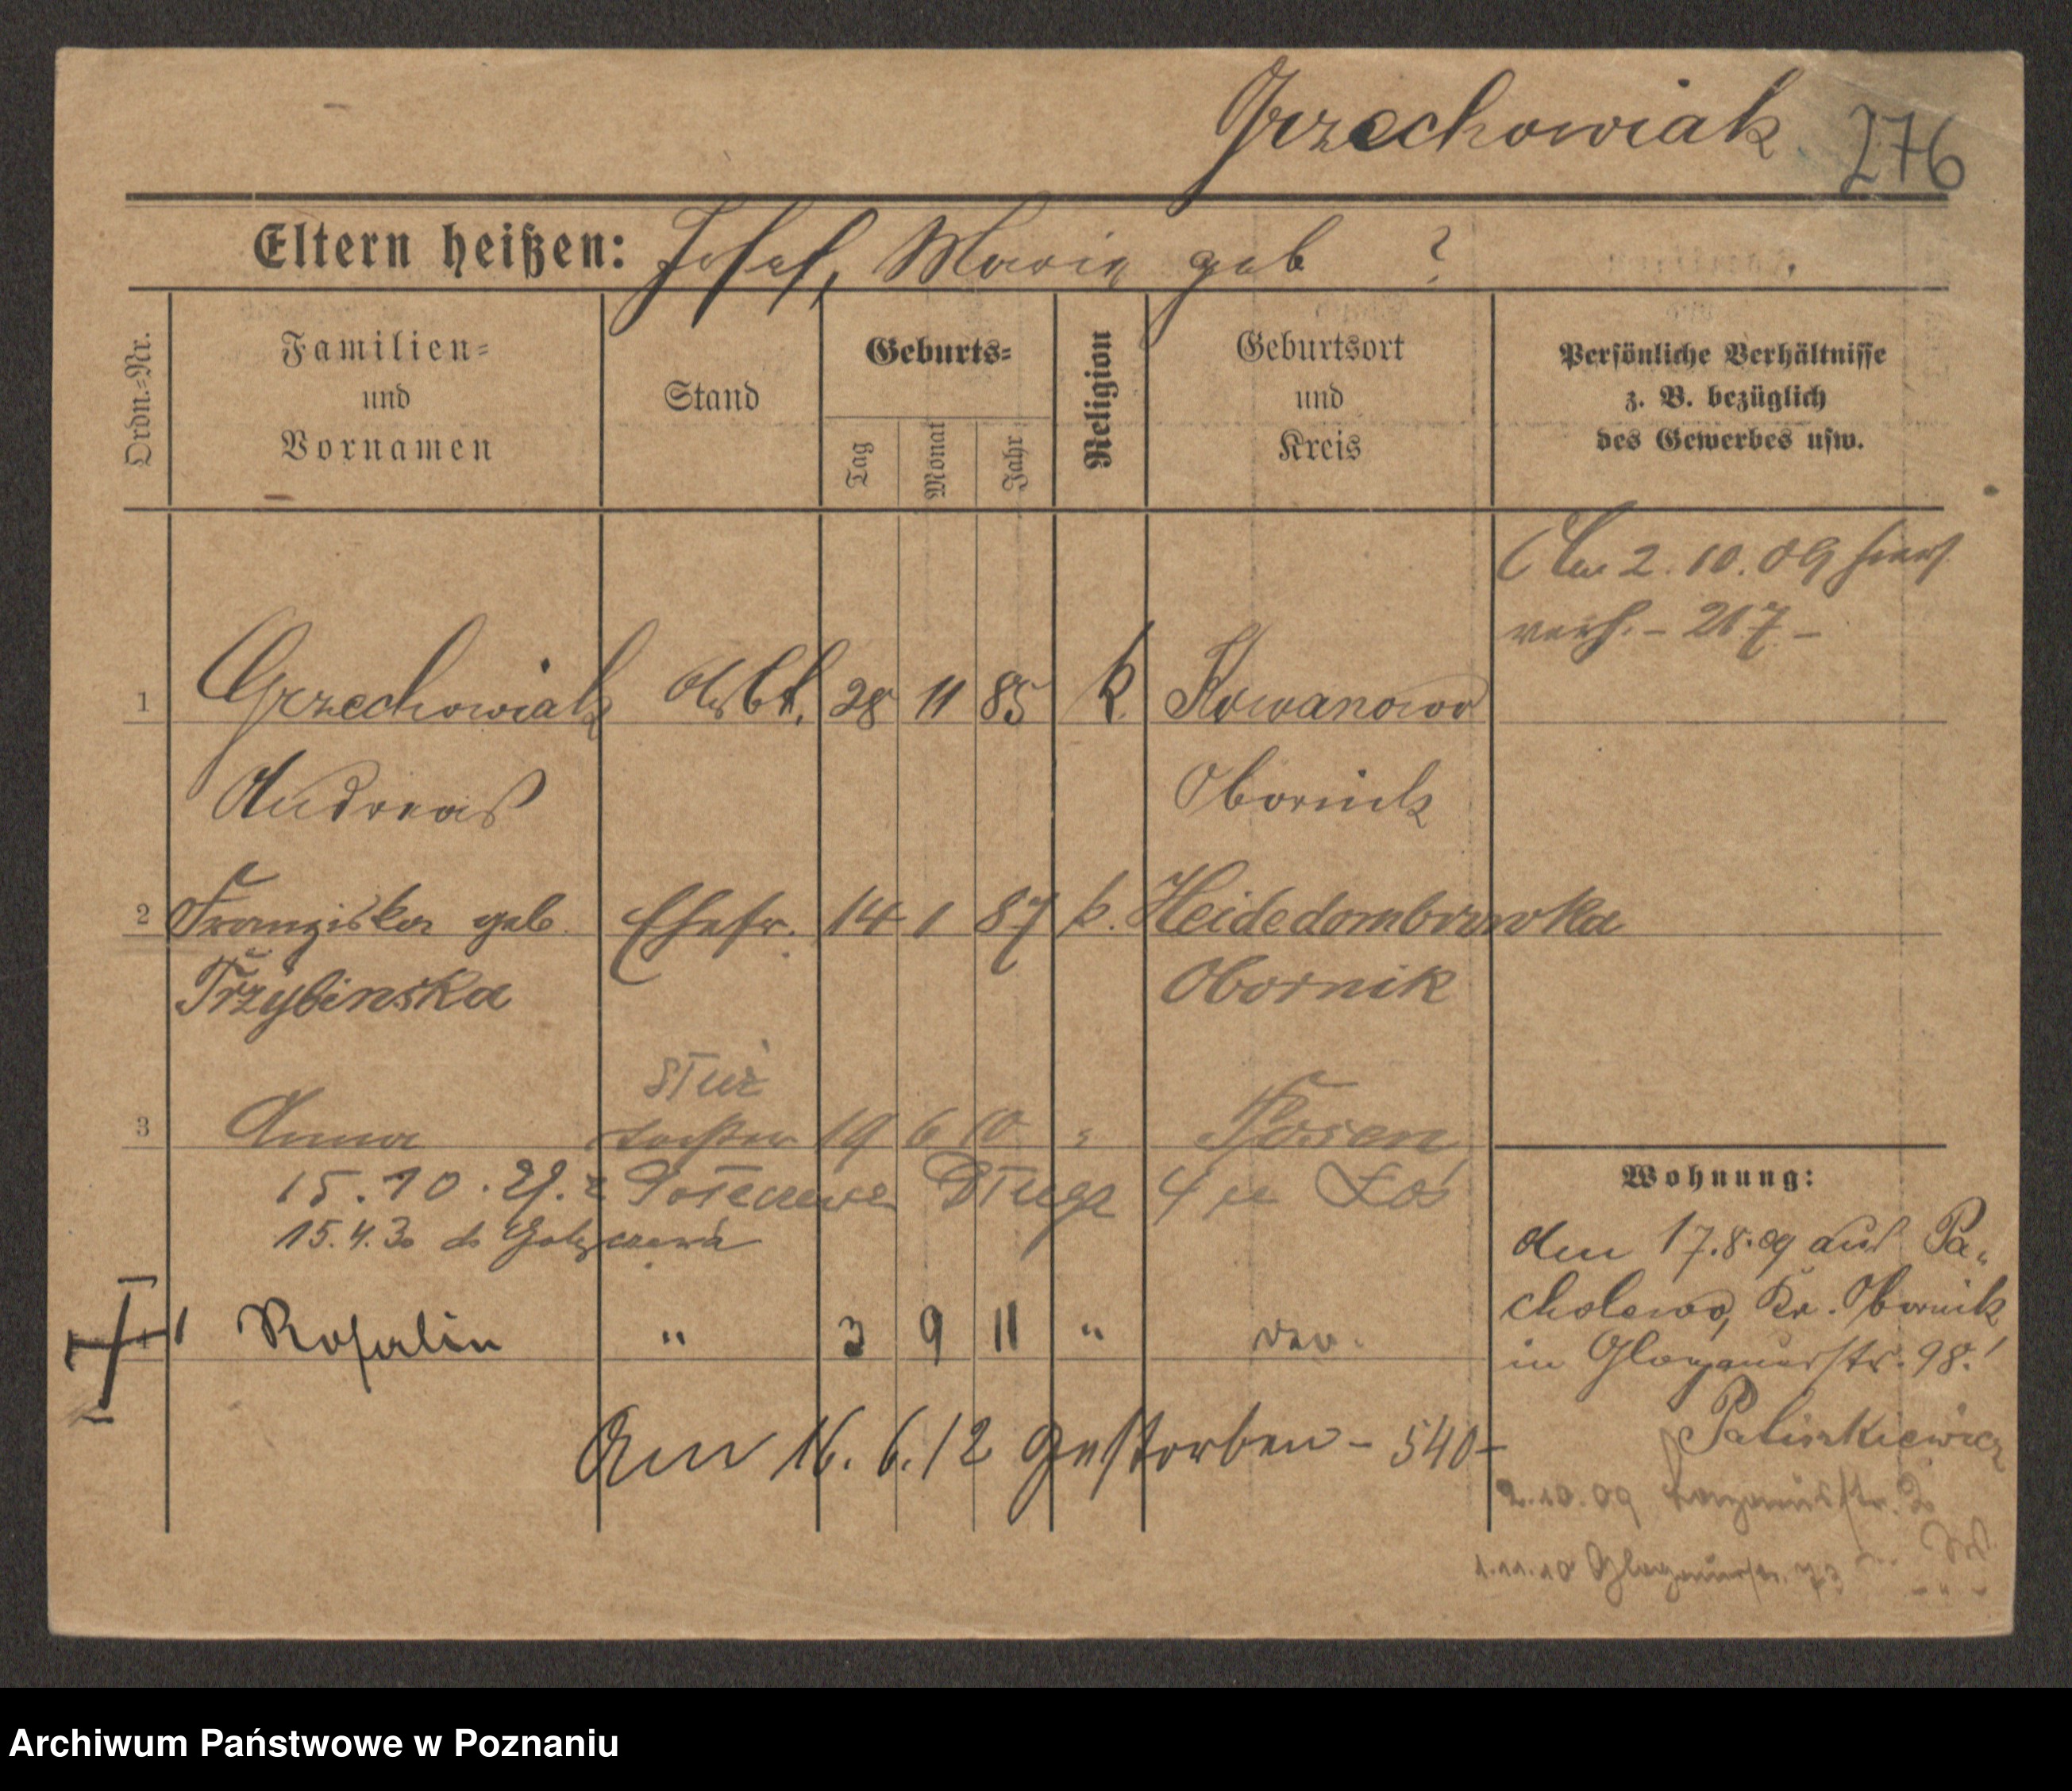 Grzechowiak 276
Eltern heißen: Josef, Maria geb ?
Ordn.-Nr.
Familien-
und
Vornamen
Stand
Geburts-
Tag
Monat
Jahr
Religion
Geburtsort
und
Kreis
Persönliche Verhältnisse
z. B. bezüglich
des Gewerbes usw.
Am 2.10.09 hier
verh. - 217 -
1 Grzechowiak 28 11 85 k. Kowanowo
Andreas Obornik
2 Franziska geb. Ehefr. 14 1 87 k. Heidedombrowka
Trzybinska Obornik
3 Anna Tochter 19 6 10 " Posen
15.10.29. z 4
15.4.30 do
4 Rosalin " 3 9 11 " do.
Am 16.6.12 gestorben - 540 -
Wohnung:
Am 17.8.09 aus Pa-
cholewo, Kr. Obornik
in Glogauerstr. 98.
Paliszkiewicz
2.10.09
1.11.10 Glogauerstr. 73
Archiwum Państwowe w Poznaniu